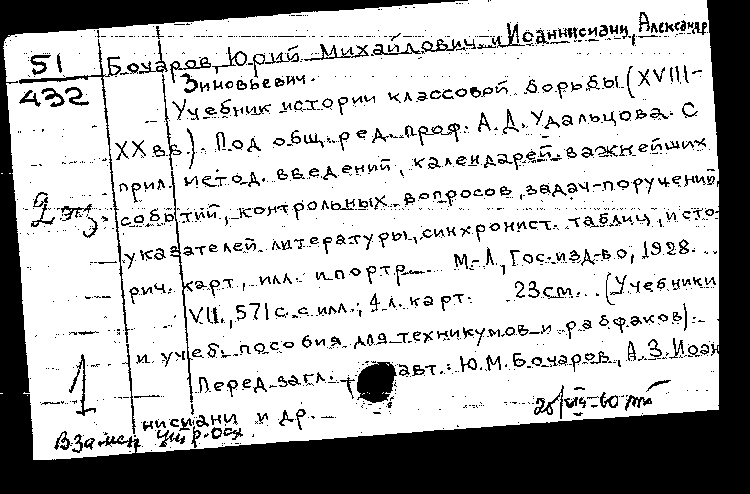 51
432
Бочаров, Юрий Михайлович и Иоаннисиани, Александр
Зиновьевич.
Учебник истории классовой борьбы (XVIII-
XX вв.). Под общ. ред. проф. А.Д. Удальцова. С
прил. метод. введений, календарей важнейших
2 экз.
событий, контрольных вопросов, задач-поручений,
указателей литературы, синхронист. таблиц, исто-
рич. карт, илл. и портр. М-Л, Гос. изд-во, 1928.
VII, 571 с. с илл.; 4 л. карт. 23 cm. (Учебники
и учеб. пособия для техникумов и рабфаков).
1
Перед загл. авт.: Ю.М. Бочаров, А.З. Иоан
нисиани и др.
Взамен